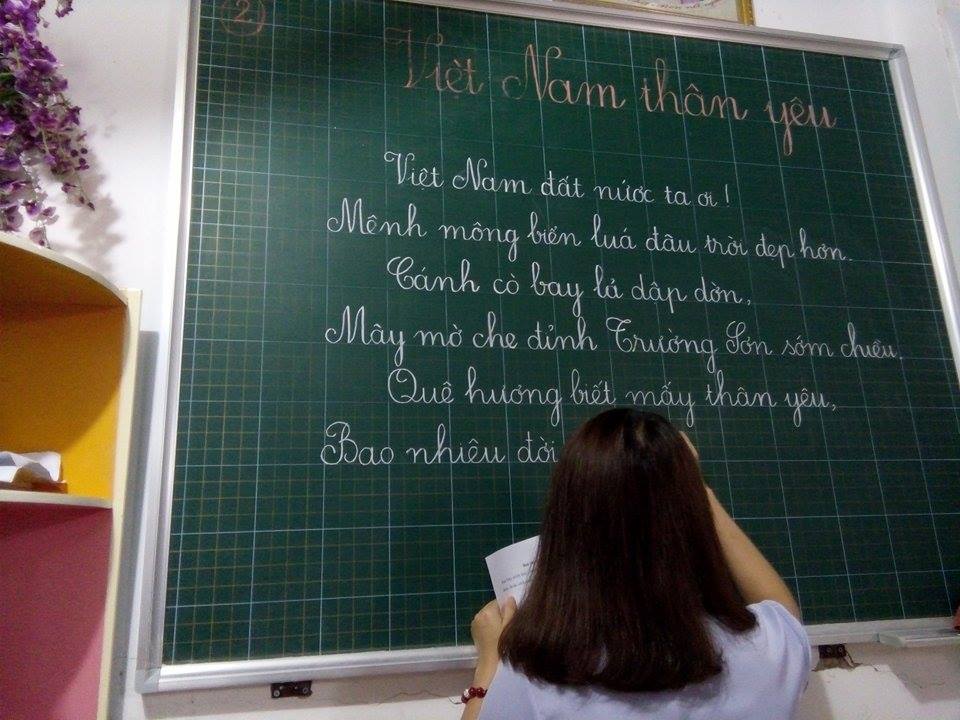 2
Việt Nam thân yêu
Việt Nam đất nước ta ơi !
Mênh mông biển luá đâu trời đẹp hơn.
Cánh cò bay lả dập dờn,
Mây mờ che đỉnh Trường Sơn sớm chiều.
Quê hương biết mấy thân yêu,
Bao nhiêu đời